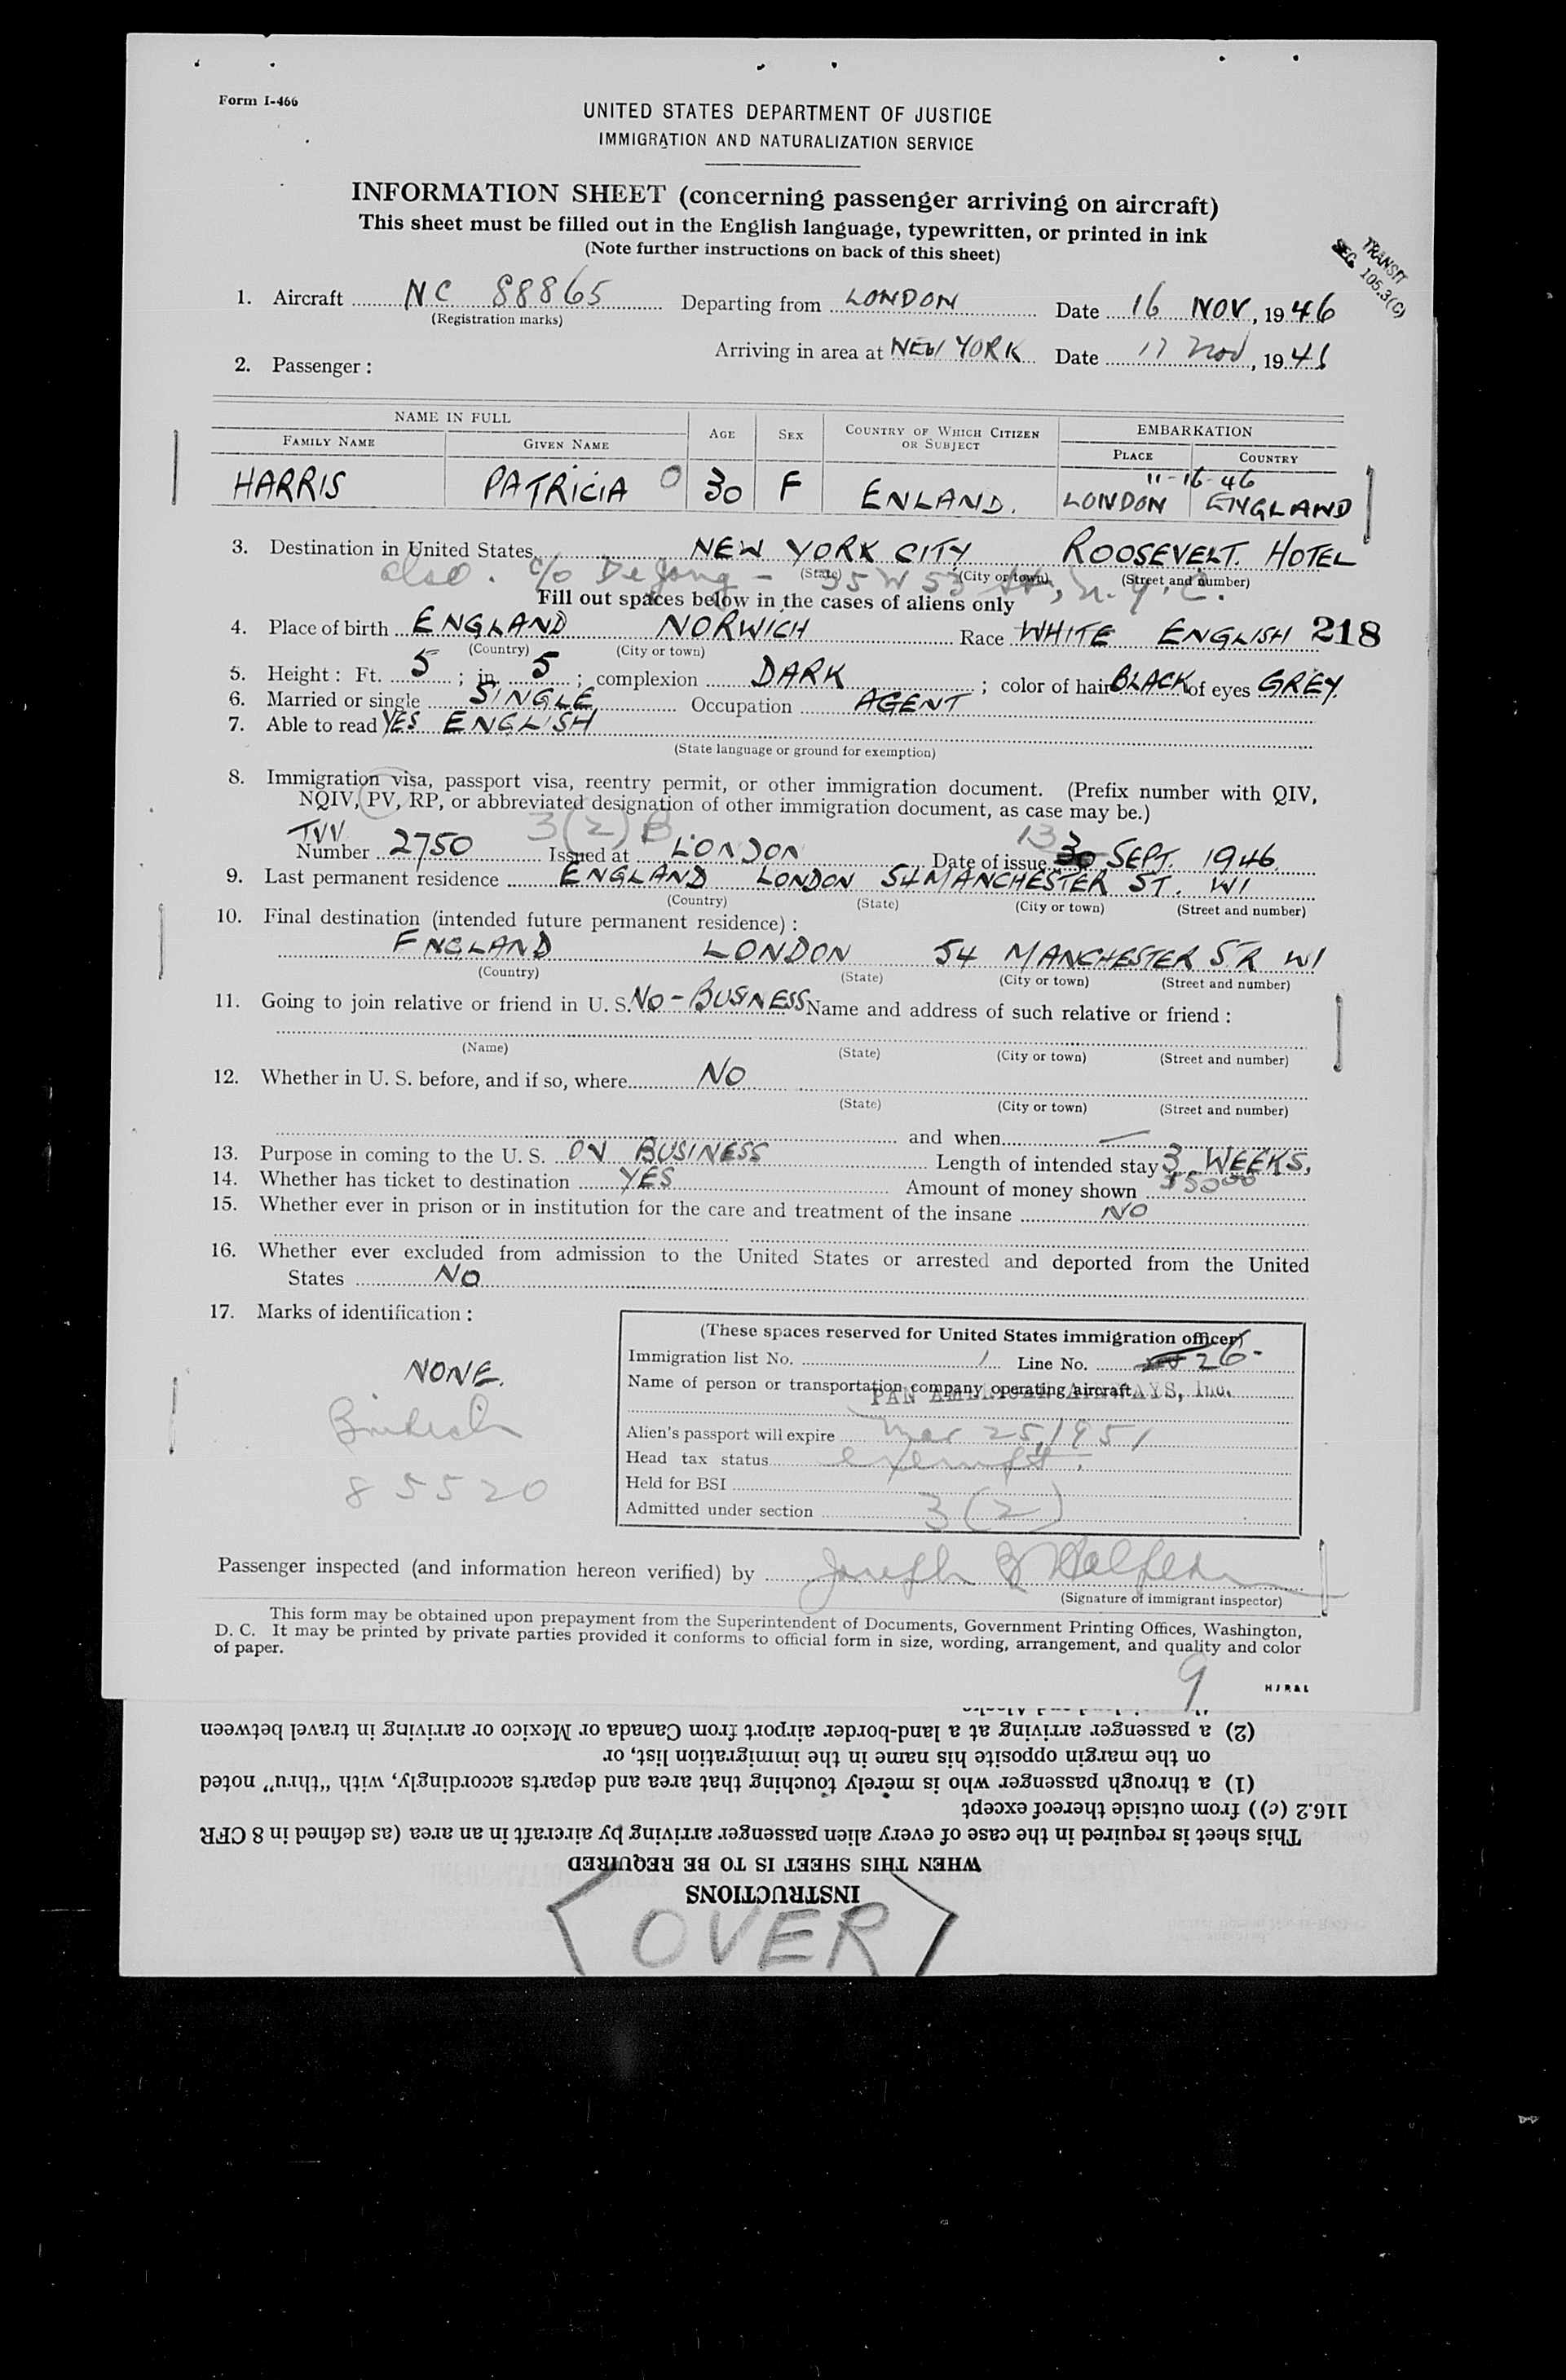 Form I-466
UNITED STATES DEPARTMENT OF JUSTICE
IMMIGRATION AND NATURALIZATION SERVICE
INFORMATION SHEET (concerning passenger arriving on aircraft)
This sheet must be filled out in the English language, typewritten, or printed in ink
(Note further instructions on back of this sheet)
TRANSIT
SEC. 105.3(C)
1. Aircraft NC 88865 Departing from LONDON Date 16 NOV, 1946
(Registration marks)
Arriving in area at NEW YORK Date 17 Nov, 1946
2. Passenger:
NAME IN FULL AGE SEX COUNTRY OF WHICH CITIZEN OR SUBJECT EMBARKATION
FAMILY NAME GIVEN NAME PLACE COUNTRY
11-16-46
HARRIS PATRICIA 0 30 F ENLAND. LONDON ENGLAND
3. Destination in United States NEW YORK CITY ROOSEVELT. HOTEL
(State) (City or town) (Street and number)
also. c/o De Jong - 35 W 53 St, N.Y.C.
Fill out spaces below in the cases of aliens only
4. Place of birth ENGLAND NORWICH Race WHITE ENGLISH 218
(Country) (City or town)
5. Height: Ft. 5; in. 5; complexion DARK; color of hair BLACK of eyes GREY.
6. Married or single SINGLE Occupation AGENT
7. Able to read YES ENGLISH
(State language or ground for exemption)
8. Immigration visa, passport visa, reentry permit, or other immigration document. (Prefix number with QIV,
NQIV, PV, RP, or abbreviated designation of other immigration document, as case may be.)
TVV 3(2)B 13
Number 2750 Issued at LONDON Date of issue 30 SEPT. 1946.
9. Last permanent residence ENGLAND LONDON 54 MANCHESTER ST. W1
(Country) (State) (City or town) (Street and number)
10. Final destination (intended future permanent residence):
ENGLAND LONDON 54 MANCHESTER STR W1
(Country) (State) (City or town) (Street and number)
11. Going to join relative or friend in U. S. NO-BUSINESS Name and address of such relative or friend:
(Name) (State) (City or town) (Street and number)
12. Whether in U. S. before, and if so, where NO
(State) (City or town) (Street and number)
and when —
13. Purpose in coming to the U. S. ON BUSINESS Length of intended stay 3 WEEKS,
14. Whether has ticket to destination YES Amount of money shown
15. Whether ever in prison or in institution for the care and treatment of the insane NO
16. Whether ever excluded from admission to the United States or arrested and deported from the United
States NO
17. Marks of identification:
NONE.
British
85520
(These spaces reserved for United States immigration officer)
Immigration list No. 1 Line No. 26-
Name of person or transportation company operating aircraft
PAN AMERICAN AIRWAYS, Inc.
Alien's passport will expire Mar 25, 1951
Head tax status exempt.
Held for BSI
Admitted under section 3(2)
Passenger inspected (and information hereon verified) by Joseph
(Signature of immigrant inspector)
This form may be obtained upon prepayment from the Superintendent of Documents, Government Printing Offices, Washington,
D. C. It may be printed by private parties provided it conforms to official form in size, wording, arrangement, and quality and color
of paper.
9
OVER
INSTRUCTIONS
WHEN THIS SHEET IS TO BE REQUIRED
This sheet is required in the case of every alien passenger arriving by aircraft in an area (as defined in 8 CFR
116.2 (c)) from outside thereof except
(1) a through passenger who is merely touching that area and departs accordingly, with "thru" noted
on the margin opposite his name in the immigration list, or
(2) a passenger arriving at a land-border airport from Canada or Mexico or arriving in travel between